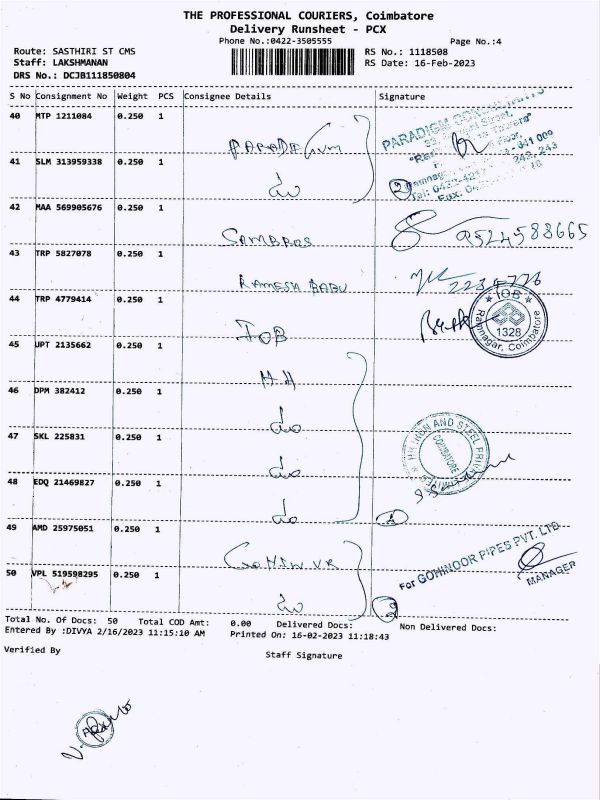 THE PROFESSIONAL COURIERS, Coimbatore
Delivery Runsheet - PCX
Phone No.:0422-3505555
Page No.:4
Route: SASTHIRI ST CMS
RS No.: 1118508
Staff: LAKSHMANAN
RS Date: 16-Feb-2023
DRS No.: DCJB111850804
S No Consignment No Weight PCS Consignee Details Signature
40 MTP 1211084 0.250 1
PARADIGM
41 SLM 313959338 0.250 1
do
2
42 MAA 569905676 0.250 1
SAMBROS 9524588665
43 TRP 5827078 0.250 1
RAMESH BABU
44 TRP 4779414 0.250 1
IOB
IOB
1328
Ramnagar, Coimbatore
45 JPT 2135662 0.250 1
H.H
46 DPM 382412 0.250 1
do
47 SKL 225831 0.250 1
do
COIMBATORE
48 EDQ 21469827 0.250 1
do
49 AMD 25975051 0.250 1
For GOHINOOR PIPES PVT. LTD
MANAGER
50 VPL 519598295 0.250 1
do
2
Total No. Of Docs: 50 Total COD Amt: 0.00 Delivered Docs: Non Delivered Docs:
Entered By :DIVYA 2/16/2023 11:15:10 AM Printed On: 16-02-2023 11:18:43
Verified By
Staff Signature